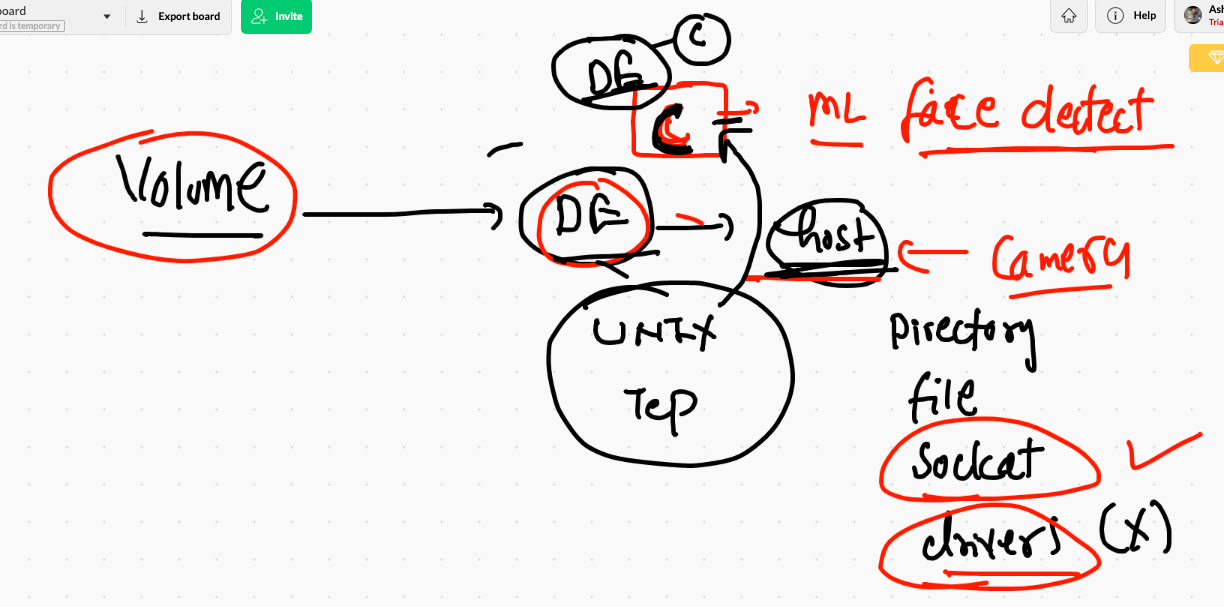 board
rd is temporary
Export board
Invite
Help
Ash
Tria
C
DE
C
ML face detect
Volume
DE
host
Camera
UNIX
Tcp
Directory
file
Sockat
drivers (X)